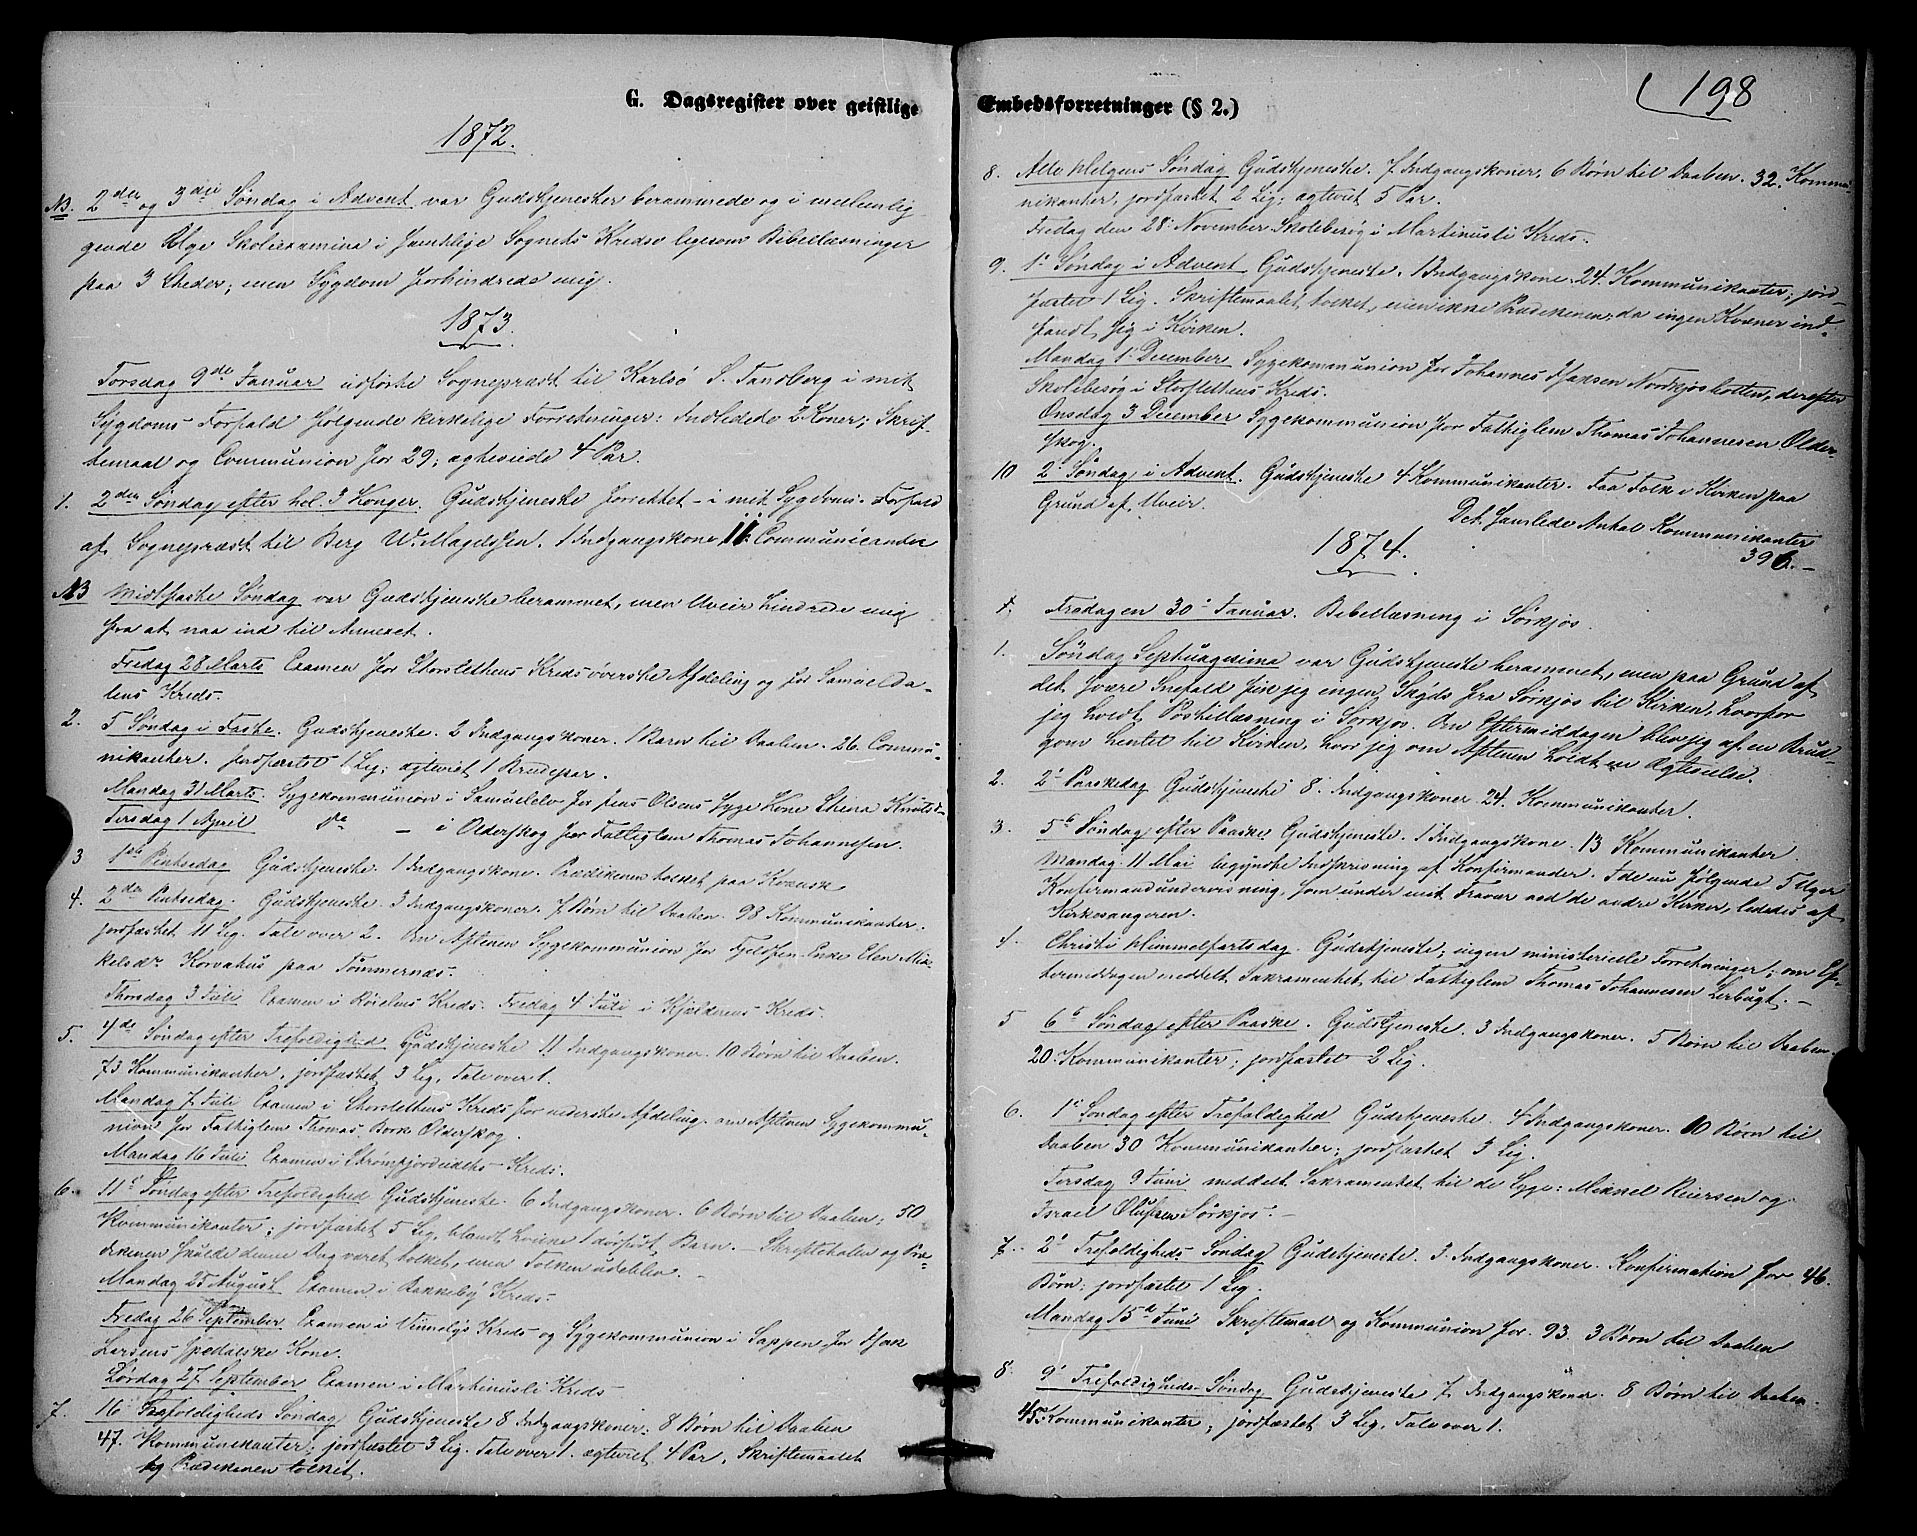 G. Dagsregister over geistlige
1872.
NB. 2den og 3die Søndag i Advent var Gudstjenester berammede og i mellemlig-
gende Uge Skoleexamina i samtlige Sognets Kredse ligesom Bibellæsninger
paa 3 Steder; men Sygdom forhindrede mig.
1873.
Torsdag 9de Januar udførte Sognepræst til Karlsø S. Tandberg i mit
Sygdoms Forfald følgende kirkelige Forretninger: Indledede 2 Koner; Skrif-
temaal og Communion for 29; ægteviede 4 Par.
1. 2den Søndag efter hel. 3 Konger. Gudstjeneste forrettet i mit Sygdoms Forfald
af Sognepræst til Berg W. Magelssen. 1 Indgangskone, 11 Communicerende
NB Midtfaste Søndag var Gudstjeneste berammet, men Uveir hindrede mig
fra at naa ind til Annexet.
Fredag 28 Marts Examen for Storslettens Kreds øverste Afdeling og for Samuelda-
lens Kreds.
2. 5 Søndag i Faste. Gudstjeneste. 2 Indgangskoner. 1 Barn til Daaben. 26 Commu-
nikanter. Jordfæstet 1 Lig; ægteviet 1 Brudepar.
Mandag 31 Marts. Sygekommunion i Samuelelv for Jens Olsens syge Kone Stena Knutsd.
Tirsdag 1 April do – i Olderskog for Fattiglem Thomas Johannessen.
3 1ste Pintsedag Gudstjeneste. 1 Indgangskone. Prædikenen tolket paa Kvænsk
4. 2den Pintsedag. Gudstjeneste. 3 Indgangskoner. 7 Børn til Daaben. 98 Kommunikanter.
jordfæstet 11 Lig. Tale over 2. Om Aftenen Sygekommunion for Fjeldfin-Enke Elen Mik-
kelsdr. Korvatus paa Tømmernæs.
Thorsdag 3 Juli Examen i Røielens Kreds. Fredag 4 Juli i Kjelderens Kreds.
5. 4de Søndag efter Trefoldighed Gudstjeneste 11 Indgangskoner. 10 Børn til Daaben.
73 Kommunikanter, jordfæstet 3 Lig, Tale over 1.
Mandag 7 Juli Examen i Storslettens Kreds for nederste Afdeling. om Aftenen Sygekommu-
nion for Fattiglem Thomas Borke Olderskog.
Mandag 16 Juli Examen i Strømfjordeidets Kreds.
6. 11te Søndag efter Trefoldighed Gudstjeneste. 6 Indgangskoner. 6 Børn til Daaben; 50
Kommunikanter; jordfæstet 5 Lig, blandt hvilke 1 dødfødt Barn. – Skriftetalen og Præ-
dikenen skulde denne Dag været tolket, men Tolken udeblev. –
Mandag 25 August Examen i Bakkeby Kreds.
Fredag 26 September Examen i Vinnelys Kreds og Sygekommunion i Sappen for Isak
Larsens spedalske Kone.
Lørdag 27 September Examen i Martinusli Kreds
7. 16 Trefoldigheds Søndag Gudstjeneste 8 Indgangskoner; 8 Børn til Daaben
47. Kommunikanter; jordfæstet 3 Lig. Tale over 1. ægteviet 4 Par, Skriftemaalet
og Prædikenen tolket.
Embedsforretninger (§ 2.)
198
8. Alle Helgens Søndag Gudstjeneste. 7 Indgangskoner, 6 Børn til Daaben. 32. Kommu-
nikanter, jordfæstet 2 Lig; ægteviet 5 Par.
Fredag den 28. November Skolebesøg i Martinusli Kreds.
9. 1ste Søndag i Advent Gudstjeneste. 1 Indgangskone. 24. Kommunikanter; jord-
fæstet 1 Lig. Skriftemaalet tolket, men ikke Prædikenen, da ingen Kvæner ind-
fandt sig i Kirken.
Mandag 1 December Sygekommunion for Johannes Isaksen Nordkjosbotten, derefter
Skolebesøg i Storslettens Kreds.
Onsdag 3 December Sygekommunion for Fattiglem Thomas Johannesen Older-
skog.
10 2. Søndag i Advent. Gudstjeneste 4 Kommunikanter. Faa Folk i Kirken paa
Grund af Uveir.
Det samlede Antal Kommunikanter
396.–
1874.
Fredagen 30. Januar. Bibellæsning i Sørkjos.
1. Søndag Septuagesima var Gudstjeneste berammet, men paa Grund af
det svære Snefald fik jeg ingen Skyds fra Sørkjos til Kirken, hvorfor
jeg holdt Postillæsning i Sørkjos. Om Eftermiddagen blev jeg af en Brud-
gom hentet til Kirken, hvor jeg om Aftenen holdt en Ægtevielse.
2. 2. Paaskedag Gudstjeneste 8. Indgangskoner 24. Kommunikanter.
3. 5te Søndag efter Paaske Gudstjeneste. 1 Indgangskone. 13 Kommunikanter.
Mandag 11 Mai begyndte Indskrivning af Konfirmander. I de nu følgende 5 Uger
Konfirmandundervisning, som under mit Fravær ved de andre Kirker, lededes af
Kirkesangeren.
4. Christi Himmelfartsdag. Gudstjeneste; ingen ministerielle Forretninger; om Ef-
termiddagen meddelt Sakramentet til Fattiglem Thomas Johannesen Lerbugt. –
5 6te Søndag efter Paaske. Gudstjeneste. 3 Indgangskoner. 5 Børn til Daaben.
20. Kommunikanter; jordfæstet 2 Lig.
6. 1ste Søndag efter Trefoldighed Gudstjeneste. 4 Indgangskoner. 10 Børn til
Daaben 30 Kommunikanter; jordfæstet 3 Lig.
Tirsdag 9 Juni meddelt Sakramentet til de Syge: Mikkel Reiersen og
Israel Olufsen Sørkjos. –
7. 2. Trefoldigheds Søndag Gudstjeneste. 3. Indgangskoner. Konfirmation for 46.
Børn; jordfæstet 1 Lig.
Mandag 15de Juni Skriftemaal og Kommunion for 93. 3 Børn til Daaben
8. 9. Trefoldigheds-Søndag Gudstjeneste 7. Indgangskoner. 8 Børn til Daaben.
45. Kommunikanter; jordfæstet 3 Lig, Tale over 1.